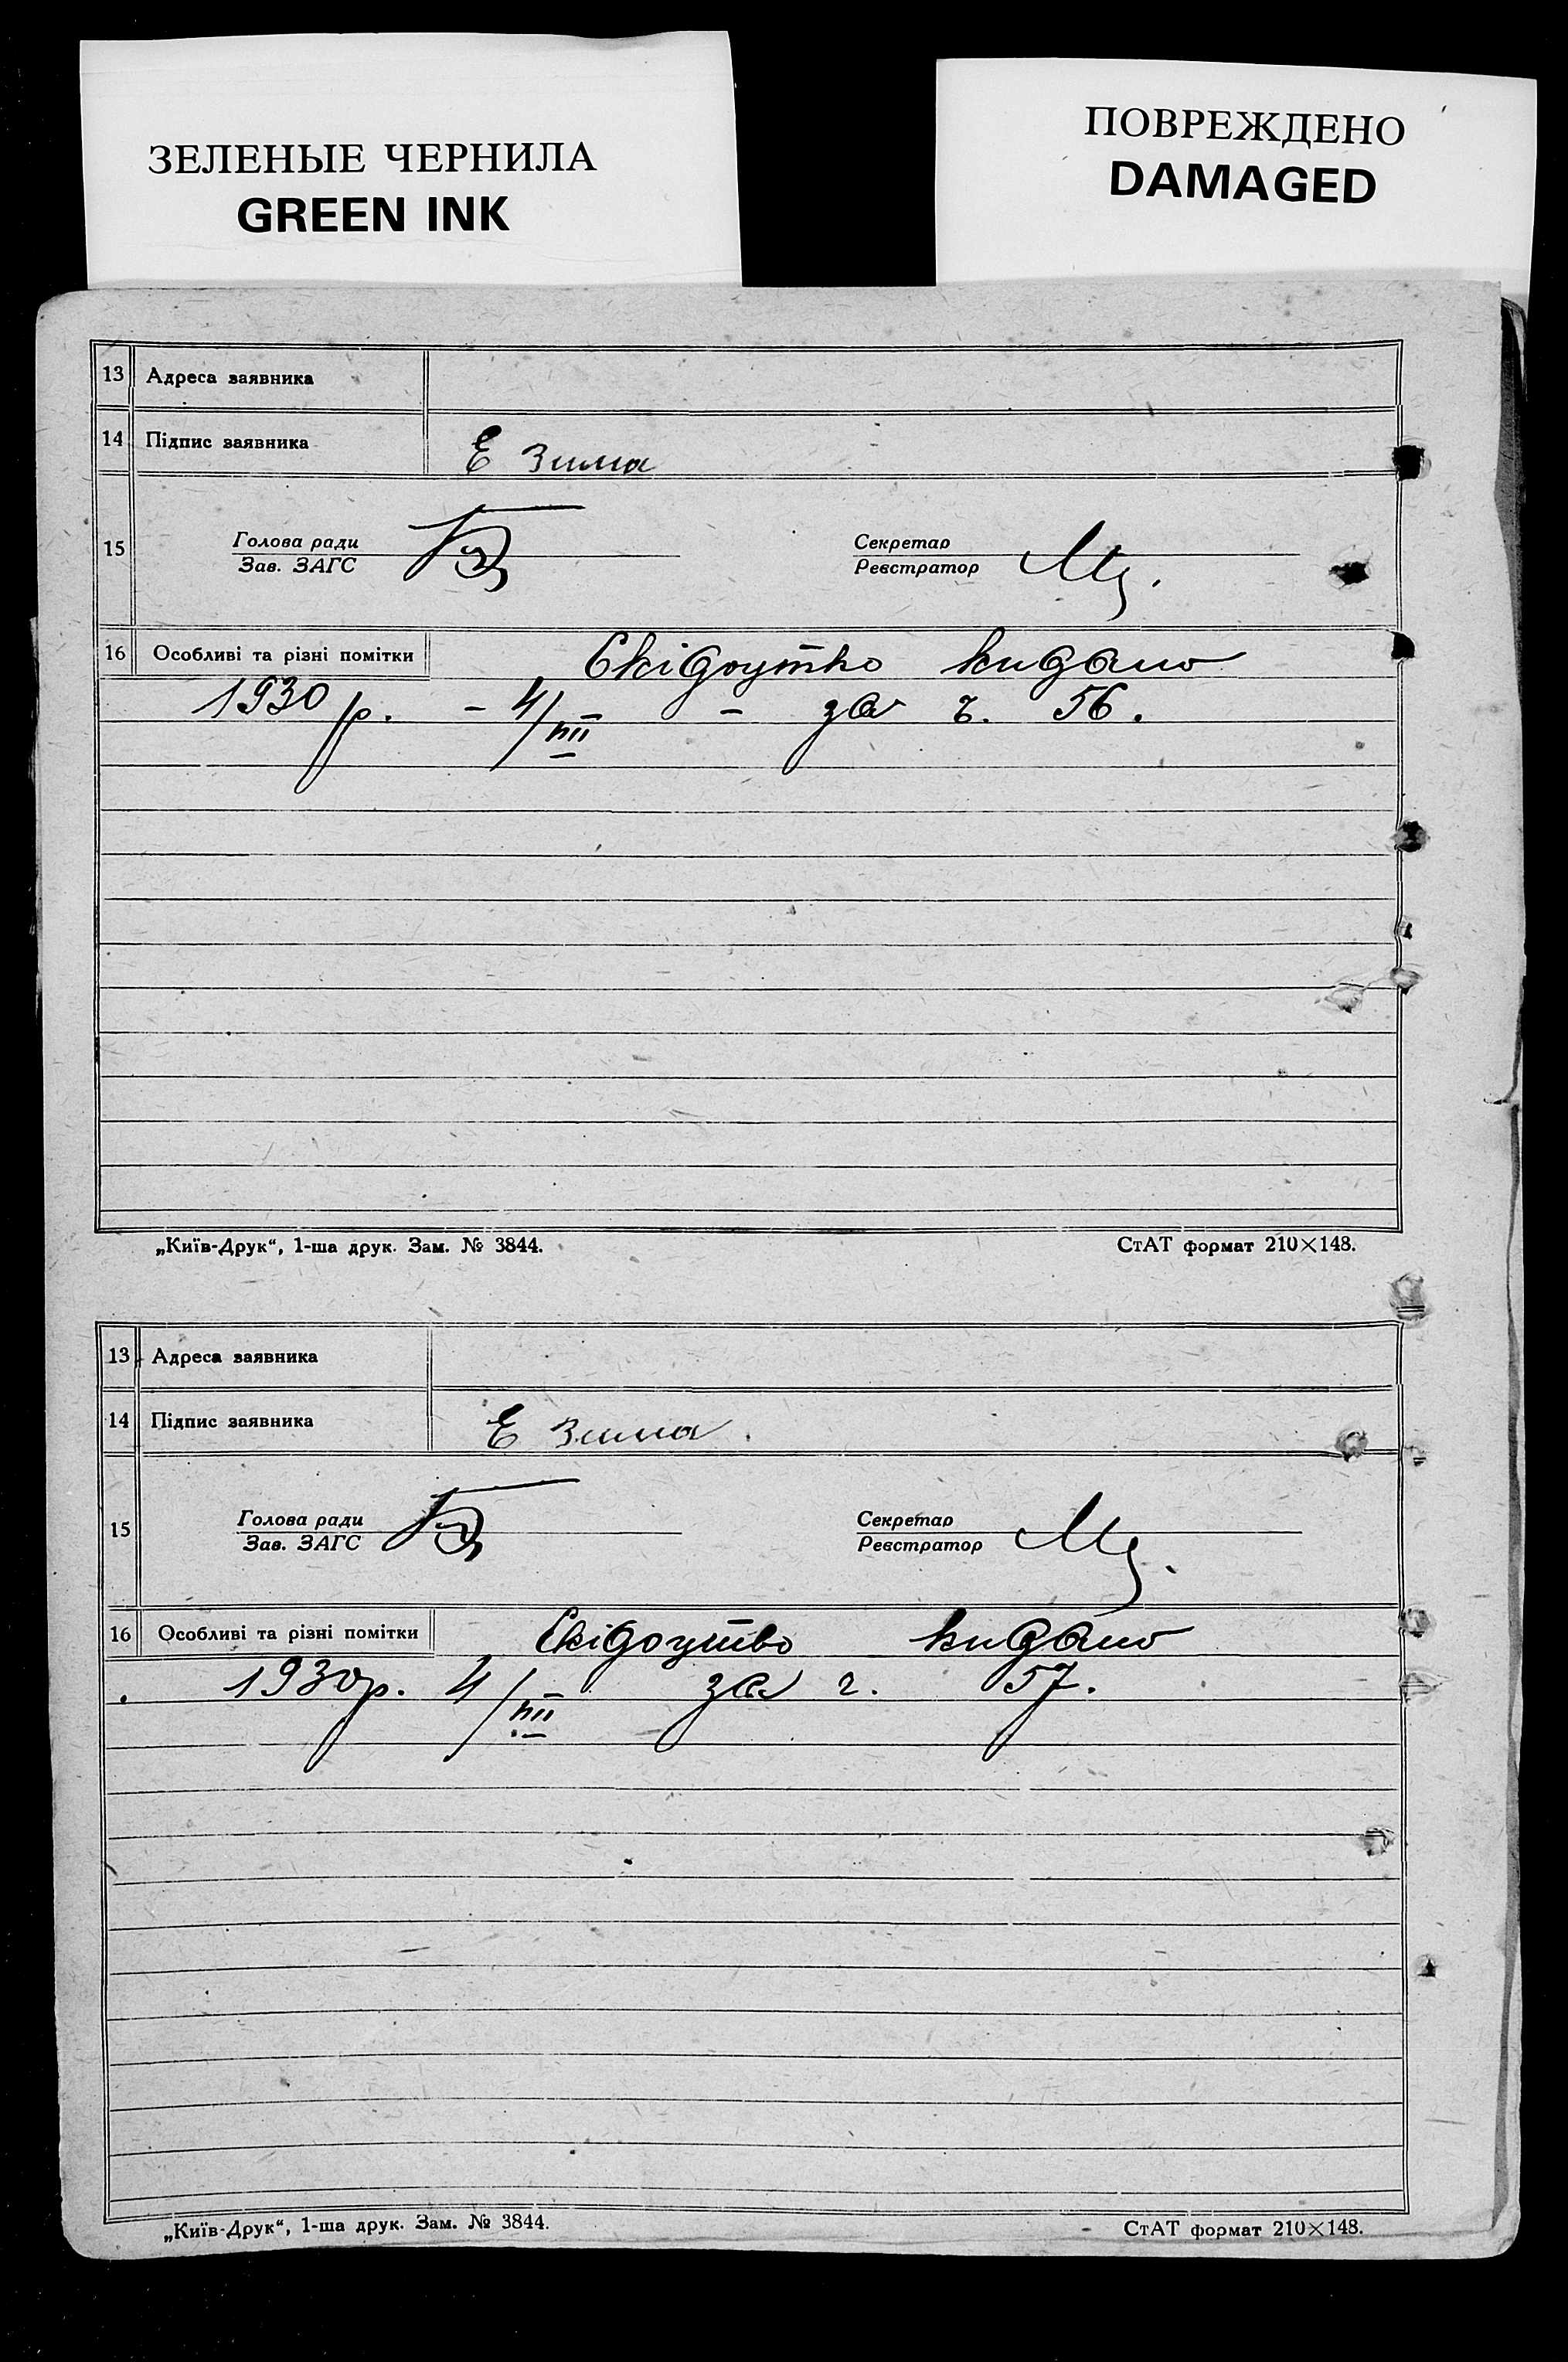 ЗЕЛЕНЫЕ ЧЕРНИЛА
GREEN INK
ПОВРЕЖДЕНО
DAMAGED
13 Адреса заявника
14 Підпис заявника Е Зима
15 Голова ради Секретар
Зав. ЗАГС Реєстратор
16 Особливі та різні помітки Свідоцтво видано
1930 р. - 4/VIII - за ч. 56.
„Київ-Друк“, 1-ша друк. Зам. № 3844. СтАТ формат 210×148.
13 Адреса заявника
14 Підпис заявника Е Зима.
15 Голова ради Секретар
Зав. ЗАГС Реєстратор
16 Особливі та різні помітки Свідоцтво видано
1930р. 4/VIII за ч. 57.
„Київ-Друк“, 1-ша друк. Зам. № 3844. СтАТ формат 210×148.